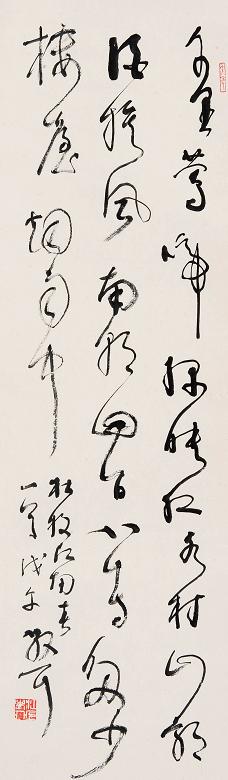 千里鶯啼綠映紅水村山郭
酒旗風南朝四百八十寺多少
樓臺烟雨中
杜牧江南春
一首戊午散耳